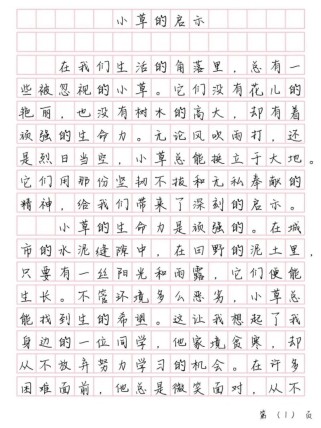 小草的启示
在我们生活的角落里，总有一
些被忽视的小草。它们没有花儿的
艳丽，也没有树木的高大，却有着
顽强的生命力。无论风吹雨打，还
是烈日当空，小草总能挺立于大地。
它们用那份坚韧不拔和无私奉献的
精神，给我们带来了深刻的启示。
小草的生命力是顽强的。在城
市的水泥缝隙中，在田野的泥土里，
只要有一丝阳光和雨露，它们便能
生长。不管环境多么恶劣，小草总
能找到生的希望。这让我想起了我
身边的一位同学，他家境贫寒，却
从不放弃努力学习的机会。在许多
困难面前，他总是微笑面对，从不
第 (1) 页